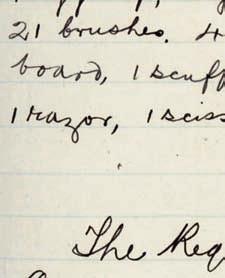 21 brushes. 4
board, 1 scuff
1 razor, 1 sciss
The Req